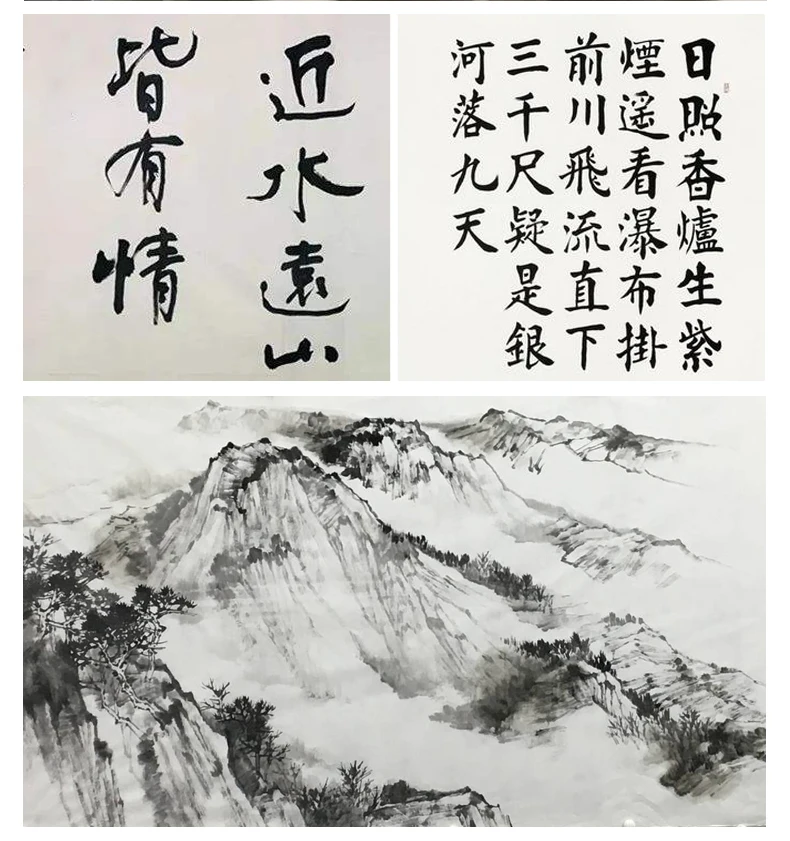 近水遠山
皆有情
日照香爐生紫
煙遥看瀑布掛
前川飛流直下
三千尺疑是銀
河落九天